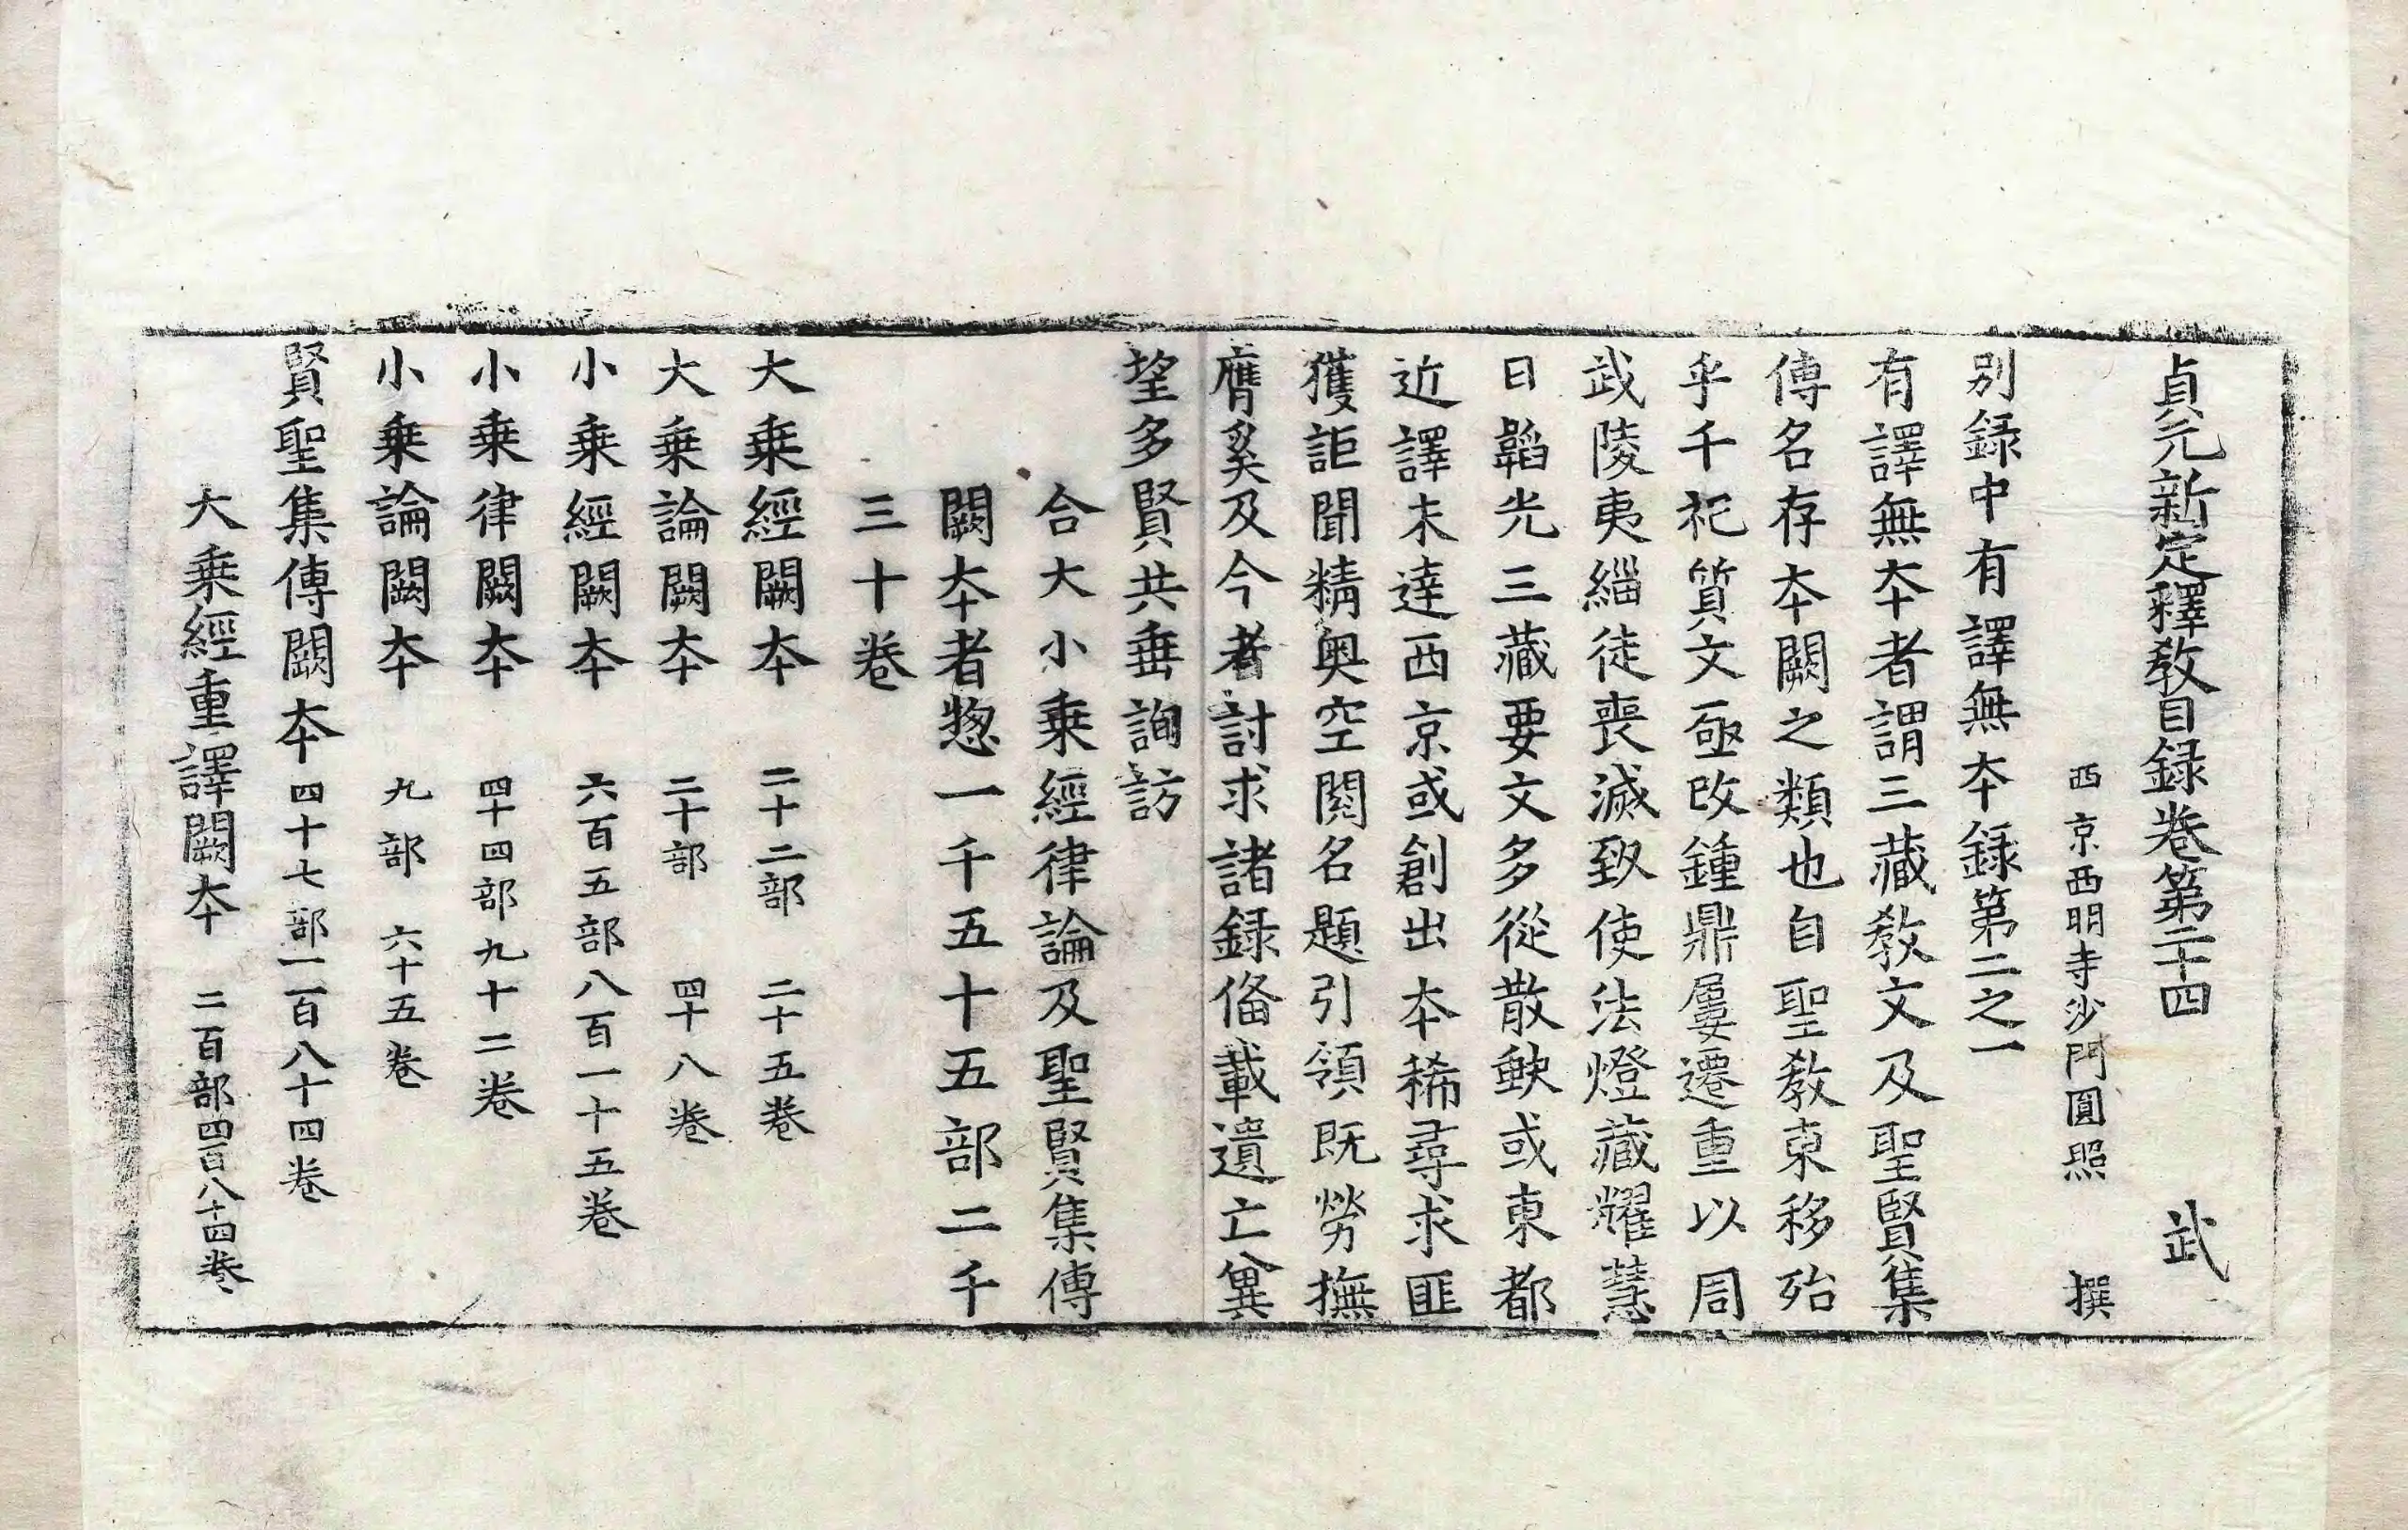 貞元新定釋教目録卷第二十四 武
西京西明寺沙門圓照 撰
別録中有譯無夲録第二之一
有譯無夲者謂三藏教文及聖賢集
傳名存夲闕之類也自聖教東移殆
乎千祀質文亟改鍾鼎屢遷重以周
武陵夷緇徒喪滅致使法燈藏耀慧
日韜光三藏要文多從散軼或東都
近譯未達西京或創出夲稀尋求匪
獲詎聞精奥空閱名題引領既勞撫
膺奚及今者討求諸録俻載遺亡兾
望多賢共垂詢訪
合大小乗經律論及聖賢集傳
闕夲者惣一千五十五部二千
三十卷
大乗經闕夲 二十二部 二十五卷
大乗論闕夲 二十部 四十八卷
小乗經闕夲 六百五部八百一十五卷
小乗律闕夲 四十四部九十二卷
小乗論闕夲 九部 六十五卷
賢聖集傳闕夲四十七部一百八十四卷
大乗經重譯闕夲 二百部四百八十四卷